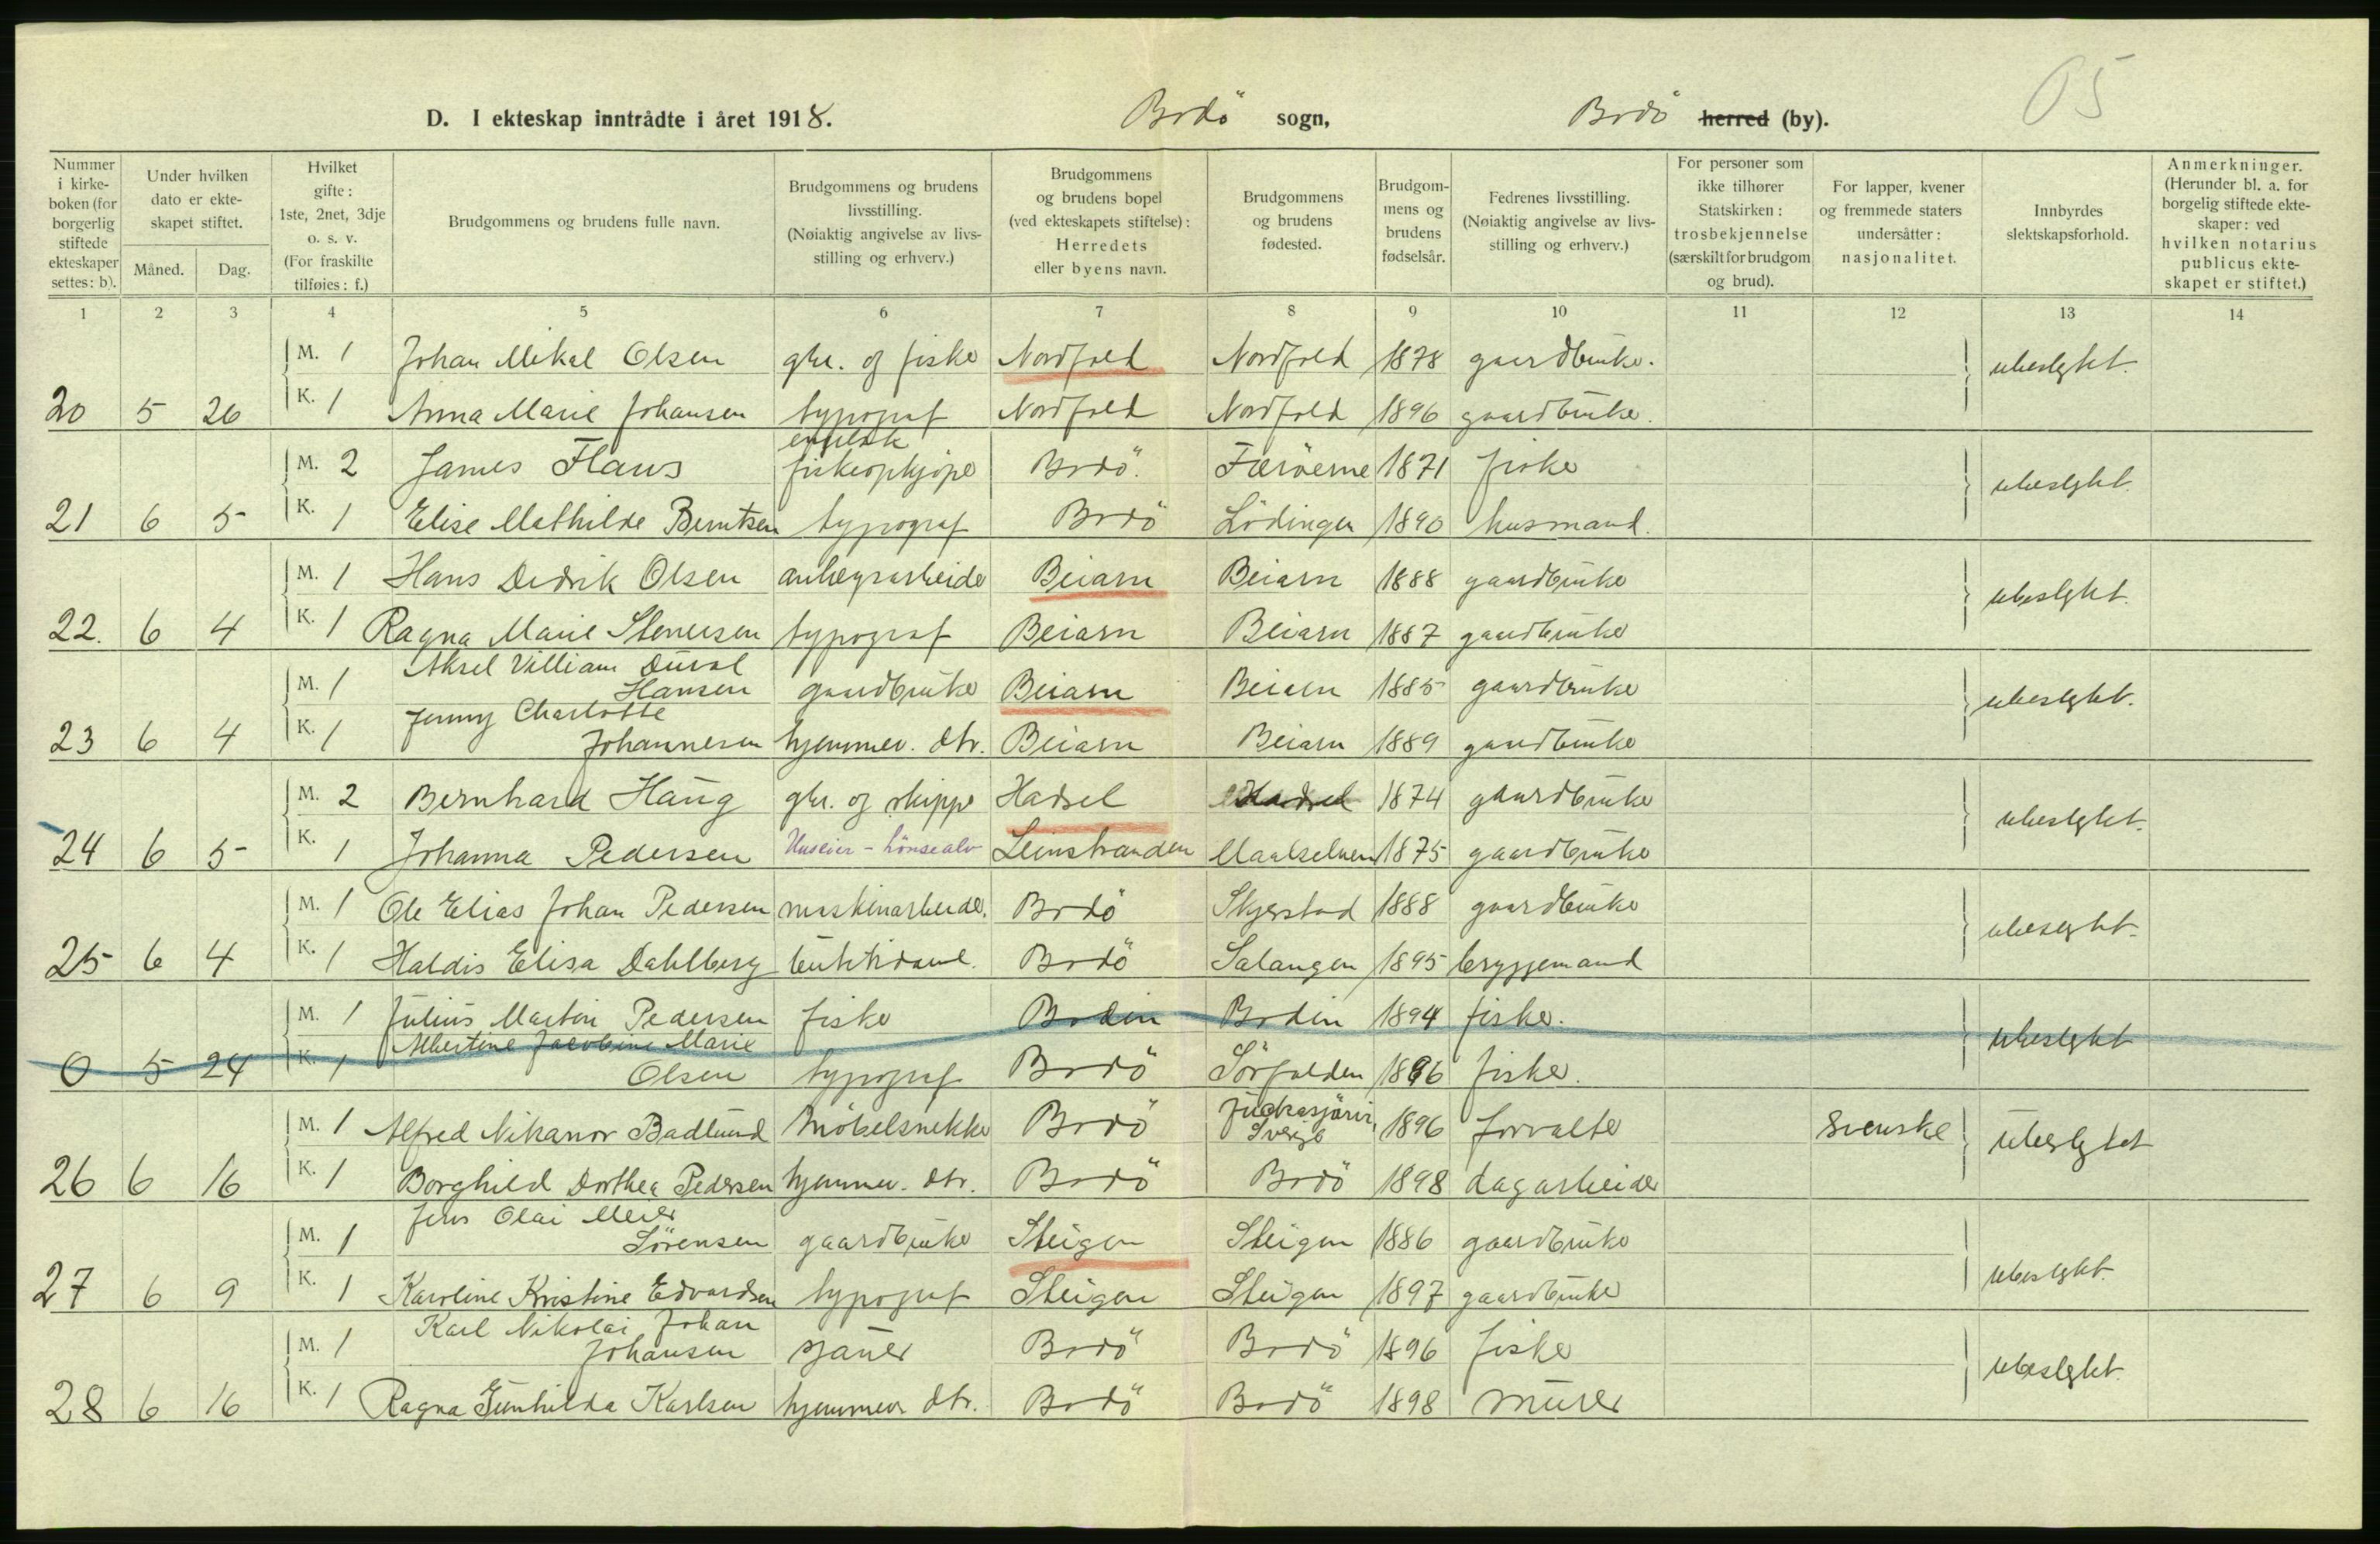 05
D. I ekteskap inntrådte i året 1918. Bodö sogn, Bodö herred (by).
Nummer i kirke-boken (for borgerlig stiftede ekteskaper settes: b).
Under hvilken dato er ekte-skapet stiftet.
Måned. Dag.
Hvilket gifte: 1ste, 2net, 3dje o. s. v. (For fraskilte tilføies: f.)
Brudgommens og brudens fulle navn.
Brudgommens og brudens livsstilling. (Nøiaktig angivelse av livs-stilling og erhverv.)
Brudgommens og brudens bopel (ved ekteskapets stiftelse): Herredets eller byens navn.
Brudgommens og brudens fødested.
Brudgom-mens og brudens fødselsår.
Fedrenes livsstilling. (Nøiaktig angivelse av livs-stilling og erhverv.)
For personer som ikke tilhører Statskirken: trosbekjennelse (særskilt for brudgom og brud).
For lapper, kvener og fremmede staters undersåtter: nasjonalitet.
Innbyrdes slektskapsforhold.
Anmerkninger. (Herunder bl. a. for borgelig stiftede ekte-skaper: ved hvilken notarius publicus ekte-skapet er stiftet.)
1 2 3 4 5 6 7 8 9 10 11 12 13 14
M. 1 Johan Mikal Olsen gbr. og fisker Nordfold Nordfold 1878 gaardbruker. ubeslgtet.
20 5 26 K. 1 Anna Marie Johansen typograf Nordfold Nordfold 1896 gaardbruker.
engelsk
M. 2 James Flaws fiskeopkjøper Bodö. Færöerne 1871 fisker ubeslgtet.
21 6 5 K. 1 Elise Mathilde Berntsen typograf Bodö Lödingen 1890 husmand.
M. 1 Hans Didrik Olsen anlegsarbeider Beiarn Beiarn 1888 gaardbruker ubeslgtet.
22. 6 4 K. 1 Ragna Marie Stenersen typograf Beiarn Beiarn 1887 gaardbruker
Aksel Villiam Duval
M. 1 Hansen gaardbruker Beiarn Beiarn 1885 gaardbruker ubeslgtet.
Jenny Charlotte
23 6 4 K. 1 Johannesen hjemmev. dtr. Beiarn Beiarn 1889 gaardbruker
M. 2 Bernhard Haug gbr. og skipper Hadsel Hadsel 1874 gaardbruker ubeslgtet.
24 6 5 K. 1 Johanna Pedersen Huseier - hönseavl Leinstranden Maalselven 1875 gaardbruker
M. 1 Ole Elias Johan Pedersen maskinarbeider. Bodö Skjerstad 1888 gaardbruker ubeslgtet.
25 6 4 K. 1 Haldis Elisa Dahlberg butikdame. Bodö Salangen 1895 bryggemand
M. 1 Julius Martin Pedersen fisker Bodin Bodin 1894 fisker. ubeslgtet
Albertine Jacobine Marie
0 5 24 K. 1 Olsen typograf Bodö Sörfolden 1896 fisker.
Juckasjärvi,
M. 1 Alfred Nikanor Badlund möbelsnekker Bodö Sverige 1896 forvalter Svenske ubeslgtet
26 6 16 K. 1 Borghild Dorthea Pedersen hjemmev. dtr. Bodö Bodö 1898 dagarbeider
Jens Olai Meier
M. 1 Sörensen gaardbruker Steigen Steigen 1886 gaardbruker ubeslgtet.
27 6 9 K. 1 Karoline Kristine Edvardsen typograf Steigen Steigen 1897 gaardbruker
Karl Nikolai Johan
M. 1 Johansen sjauer Bodö Bodö 1896 fisker ubeslgtet.
28 6 16 K. 1 Ragna Gunhilda Karlsen hjemmev dtr. Bodö Bodö 1898 murer